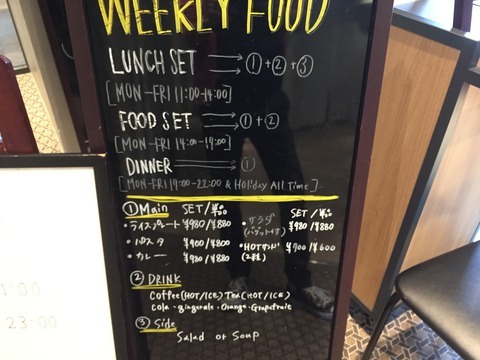 WEEKLY FOOD
LUNCH SET → ①+②+③
[MON-FRI 11:00-14:00]
FOOD SET → ①+②
[MON-FRI 14:00-19:00]
DINNER → ①
[MON-FRI 19:00-22:00 & Holiday All Time]
①Main SET/単品 SET/単品
・ライスプレート ¥980/¥880 ・サラダ(バゲット付) ¥980/¥880
・パスタ ¥900/¥800 ・HOTサンド(2種) ¥700/¥600
・カレー ¥980/¥880
② DRINK
Coffee(HOT/ICE) Tea(HOT/ICE)
Cola・gingerale・Orange・Grapefruit
③ Side
Salad or Soup
23:00